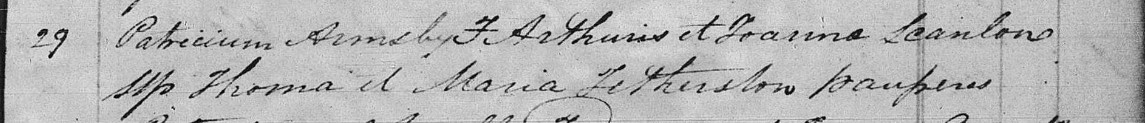 29 Patricium Armsby F Arthuris et Joanna Scanlon
Ssp Thoma et Maria Fetherston pauperes